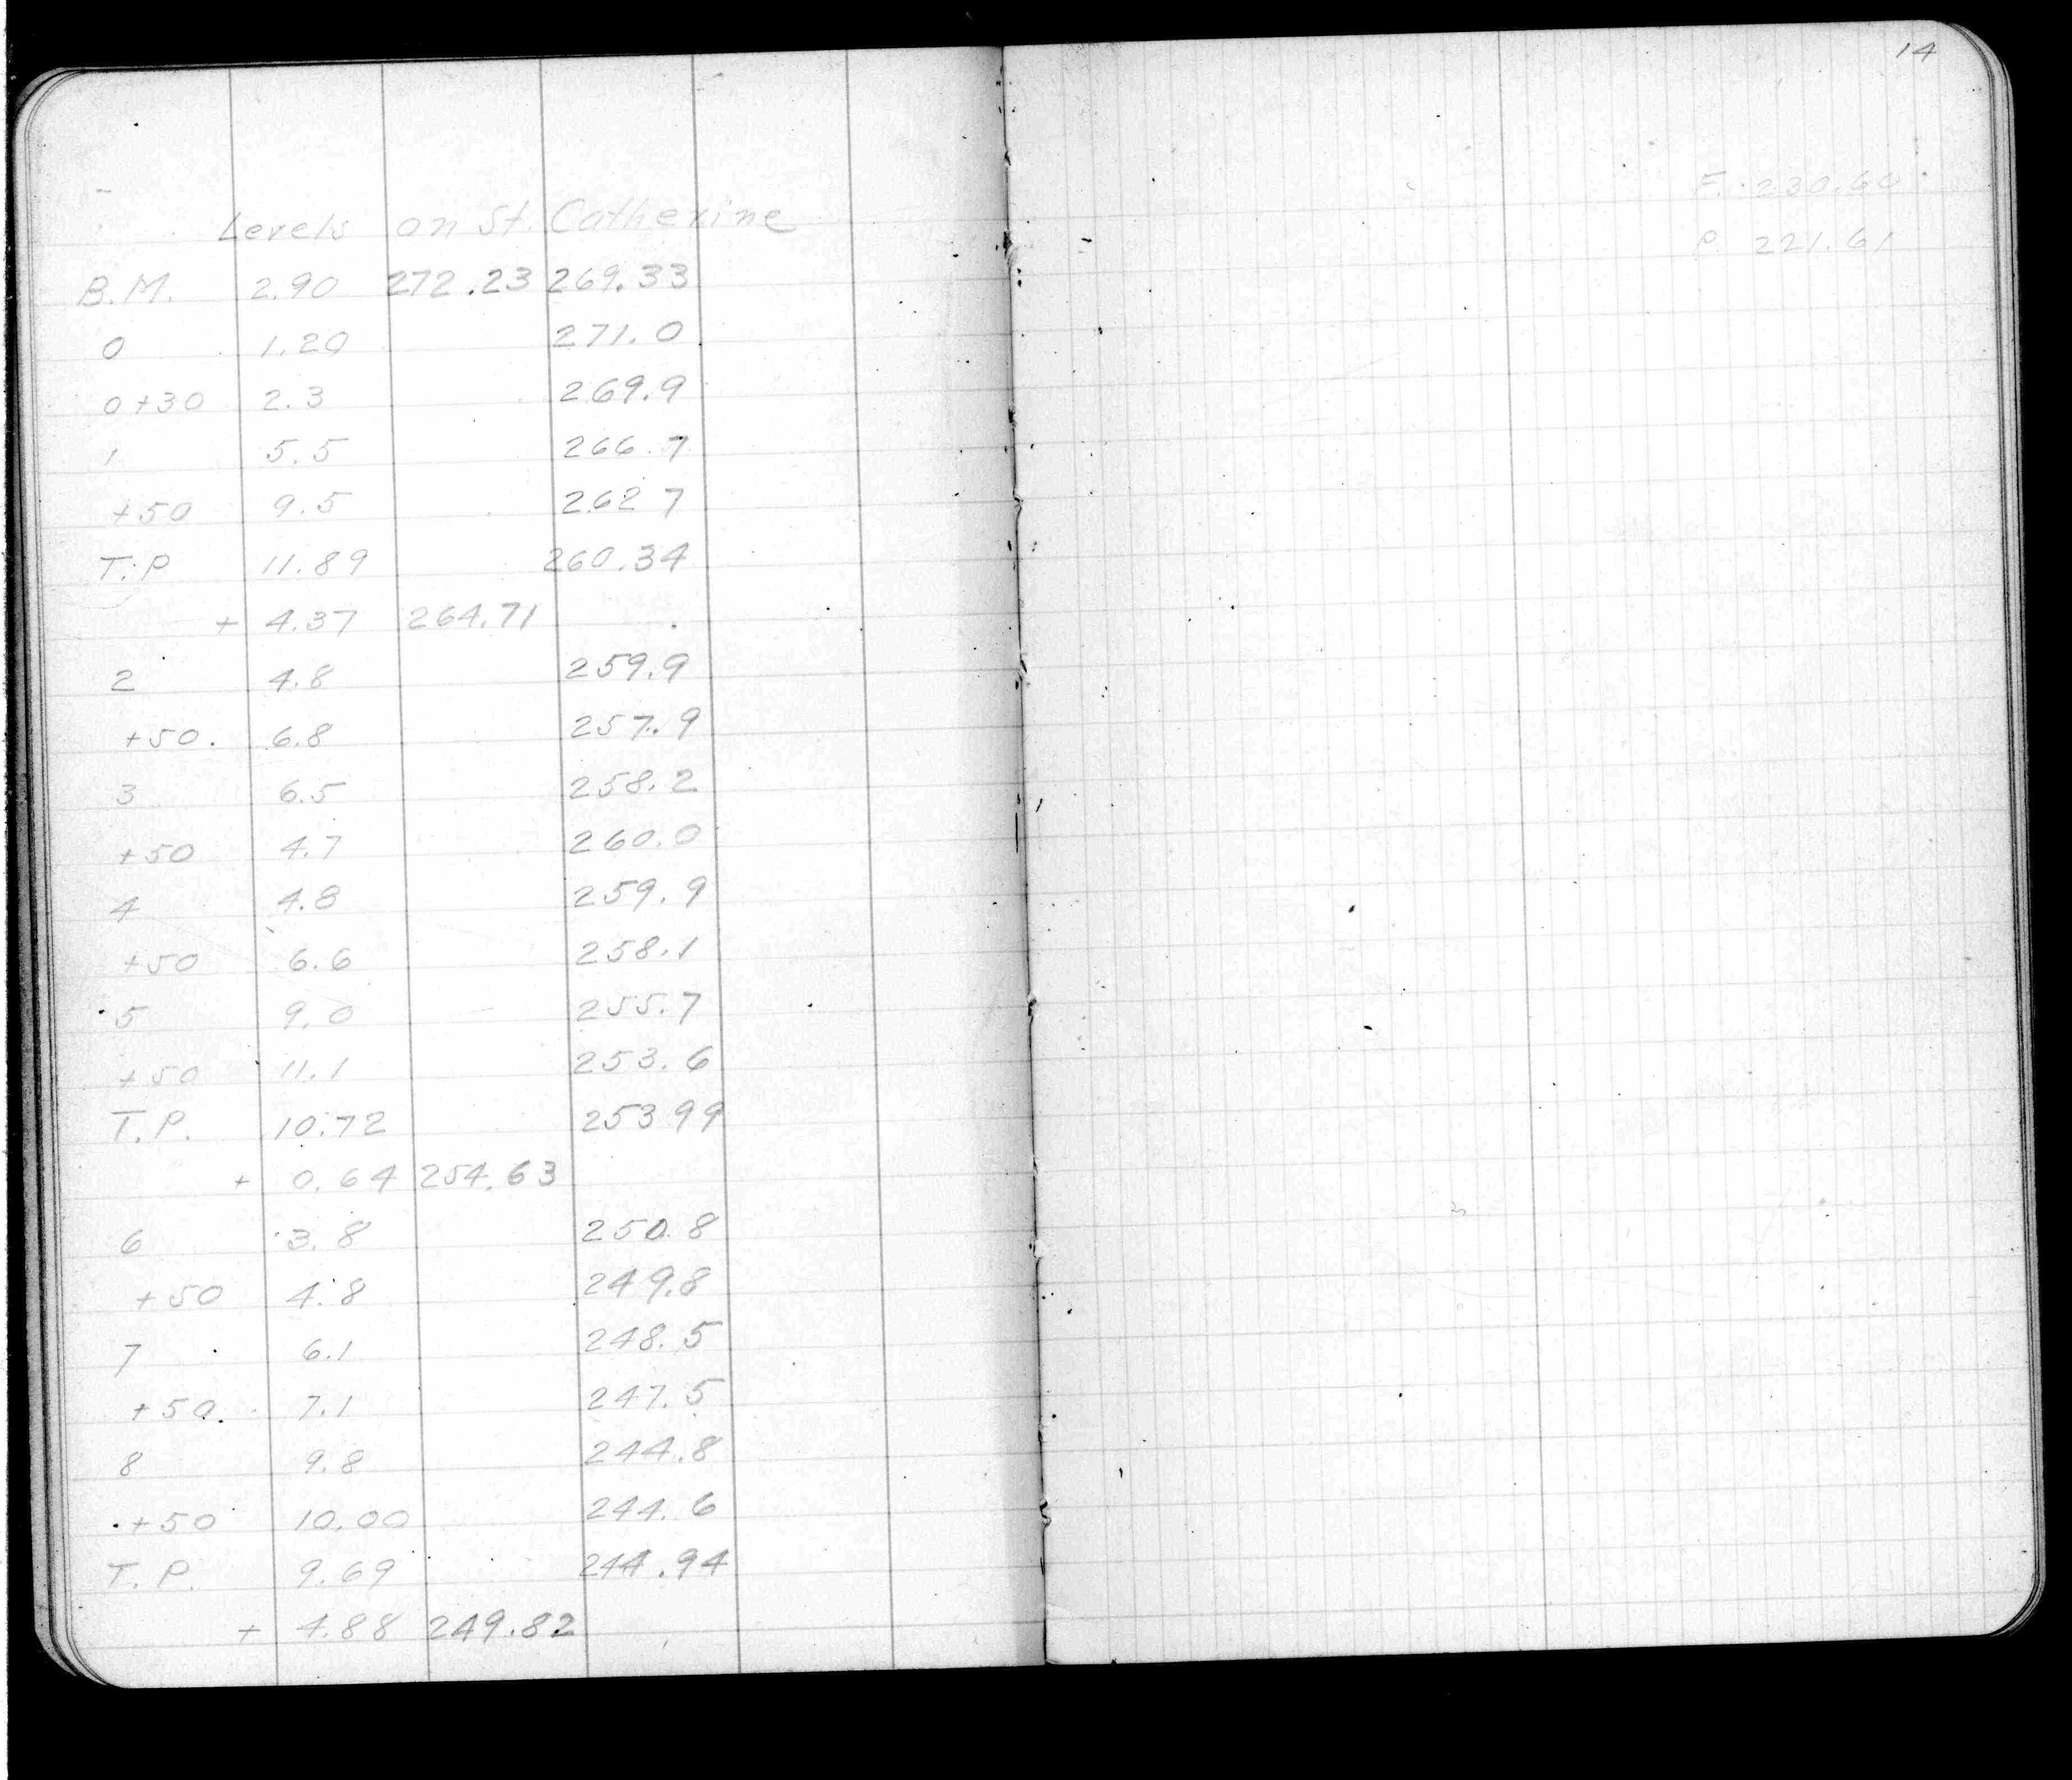 Levels on St. Catherine
B.M. 2.90 272.23 269.33
0 1.20 271.0
0+30 2.3 269.9
1 5.5 266.7
+50 9.5 262 7
T.P 11.89 260.34
+ 4.37 264.71
2 4.8 259.9
+50. 6.8 257.9
3 6.5 258.2
+50 4.7 260.0
4 4.8 259.9
+50 6.6 258.1
5 9.0 255.7
+50 11.1 253.6
T.P. 10.72 253 99
+ 0.64 254.63
6 3.8 250.8
+50 4.8 249.8
7 6.1 248.5
+50. 7.1 247.5
8 9.8 244.8
+50 10.00 244.6
T.P. 9.69 244.94
+ 4.88 249.82
14
F. 230.60
P 221.61